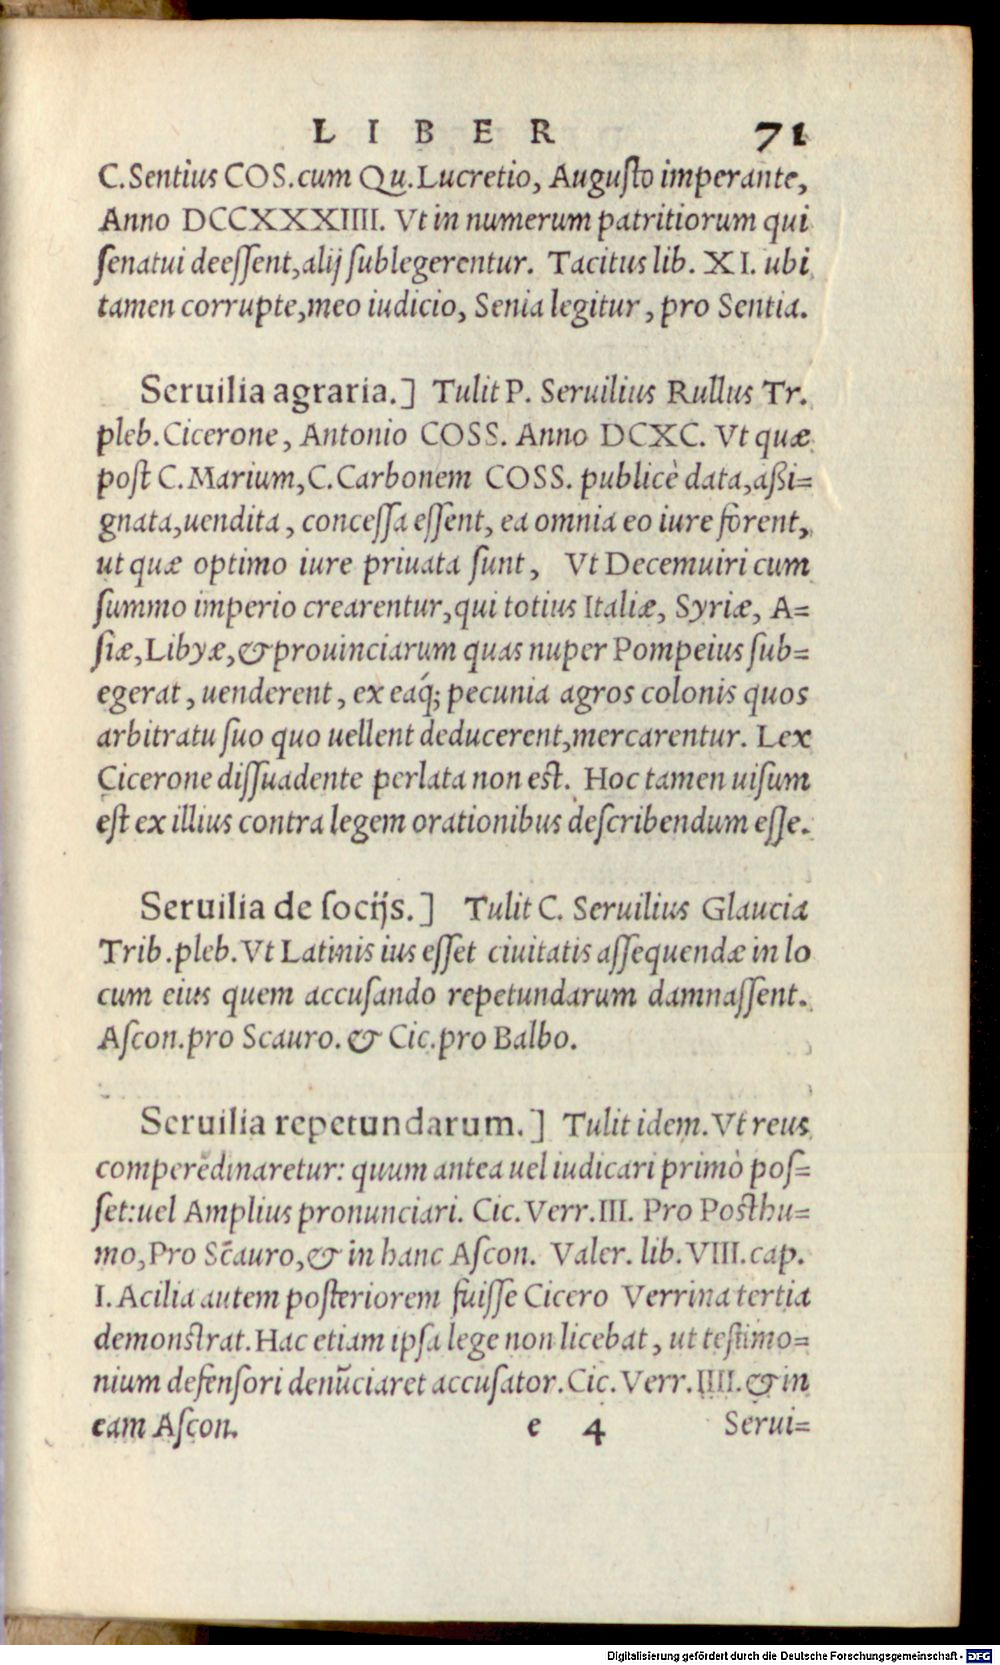 LIBER 71
C. Sentius COS. cum Qu. Lucretio, Augusto imperante,
Anno DCCXXXIIII. Vt in numerum patritiorum qui
ſenatui deeſſent, alij ſublegerentur. Tacitus lib. XI. ubi
tamen corrupte, meo iudicio, Senia legitur, pro Sentia.
Seruilia agraria.] Tulit P. Seruilius Rullus Tr.
pleb. Cicerone, Antonio COSS. Anno DCXC. Vt quæ
poſt C. Marium, C. Carbonem COSS. publicè data, aßi=
gnata, uendita, conceſſa eſſent, ea omnia eo iure forent,
ut quæ optimo iure priuata ſunt, Vt Decemuiri cum
ſummo imperio crearentur, qui totius Italiæ, Syriæ, A=
ſiæ, Libyæ, & prouinciarum quas nuper Pompeius ſub=
egerat, uenderent, ex eaq́; pecunia agros colonis quos
arbitratu ſuo quo uellent deducerent, mercarentur. Lex
Cicerone diſſuadente perlata non eſt. Hoc tamen uiſum
eſt ex illius contra legem orationibus deſcribendum eſſe.
Seruilia de ſocijs.] Tulit C. Seruilius Glaucia
Trib. pleb. Vt Latinis ius eſſet ciuitatis aſſequendæ in lo
cum eius quem accuſando repetundarum damnaſſent.
Aſcon. pro Scauro. & Cic. pro Balbo.
Seruilia repetundarum.] Tulit idem. Vt reus
comperēdinaretur: quum antea uel iudicari primò poſ=
ſet: uel Amplius pronunciari. Cic. Verr. III. Pro Poſthu=
mo, Pro Sc̄auro, & in hanc Aſcon. Valer. lib. VIII. cap.
I. Acilia autem poſteriorem fuiſſe Cicero Verrina tertia
demonſtrat. Hac etiam ipſa lege non licebat, ut teſtimo=
nium defenſori denūciaret accuſator. Cic. Verr. IIII. & in
eam Aſcon. e 4 Serui=
Digitalisierung gefördert durch die Deutsche Forschungsgemeinschaft - DFG